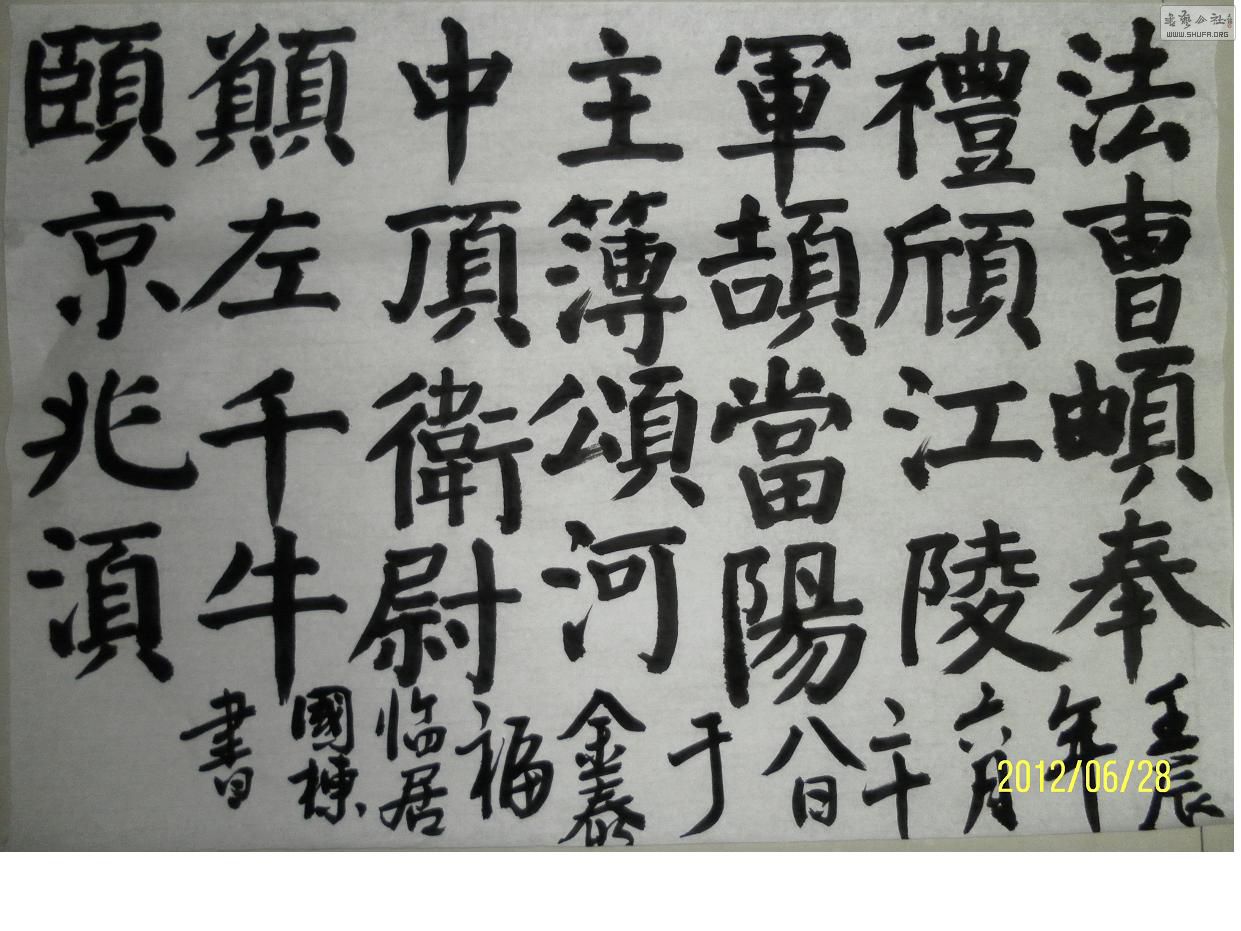 法曹頔奉
禮頎江陵
軍頡當陽
主簿頌河
中頂衛尉
顛左千牛
頤京兆湏
壬辰
年
六月
二十
八日
于
金泰
福
临居
國棟
書
2012/06/28
WWW.SHUFA.ORG